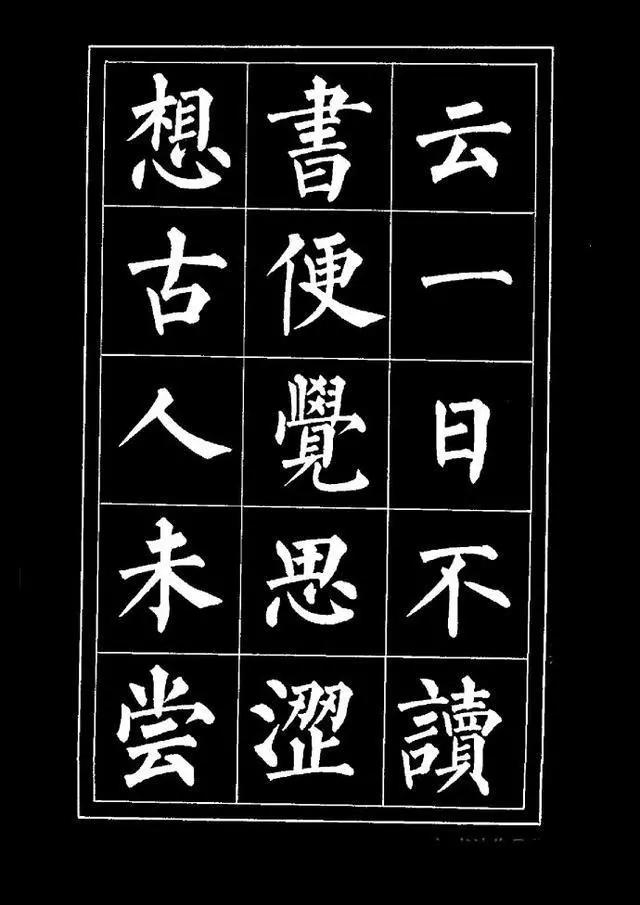 云一日不讀
書便覺思澀
想古人未尝